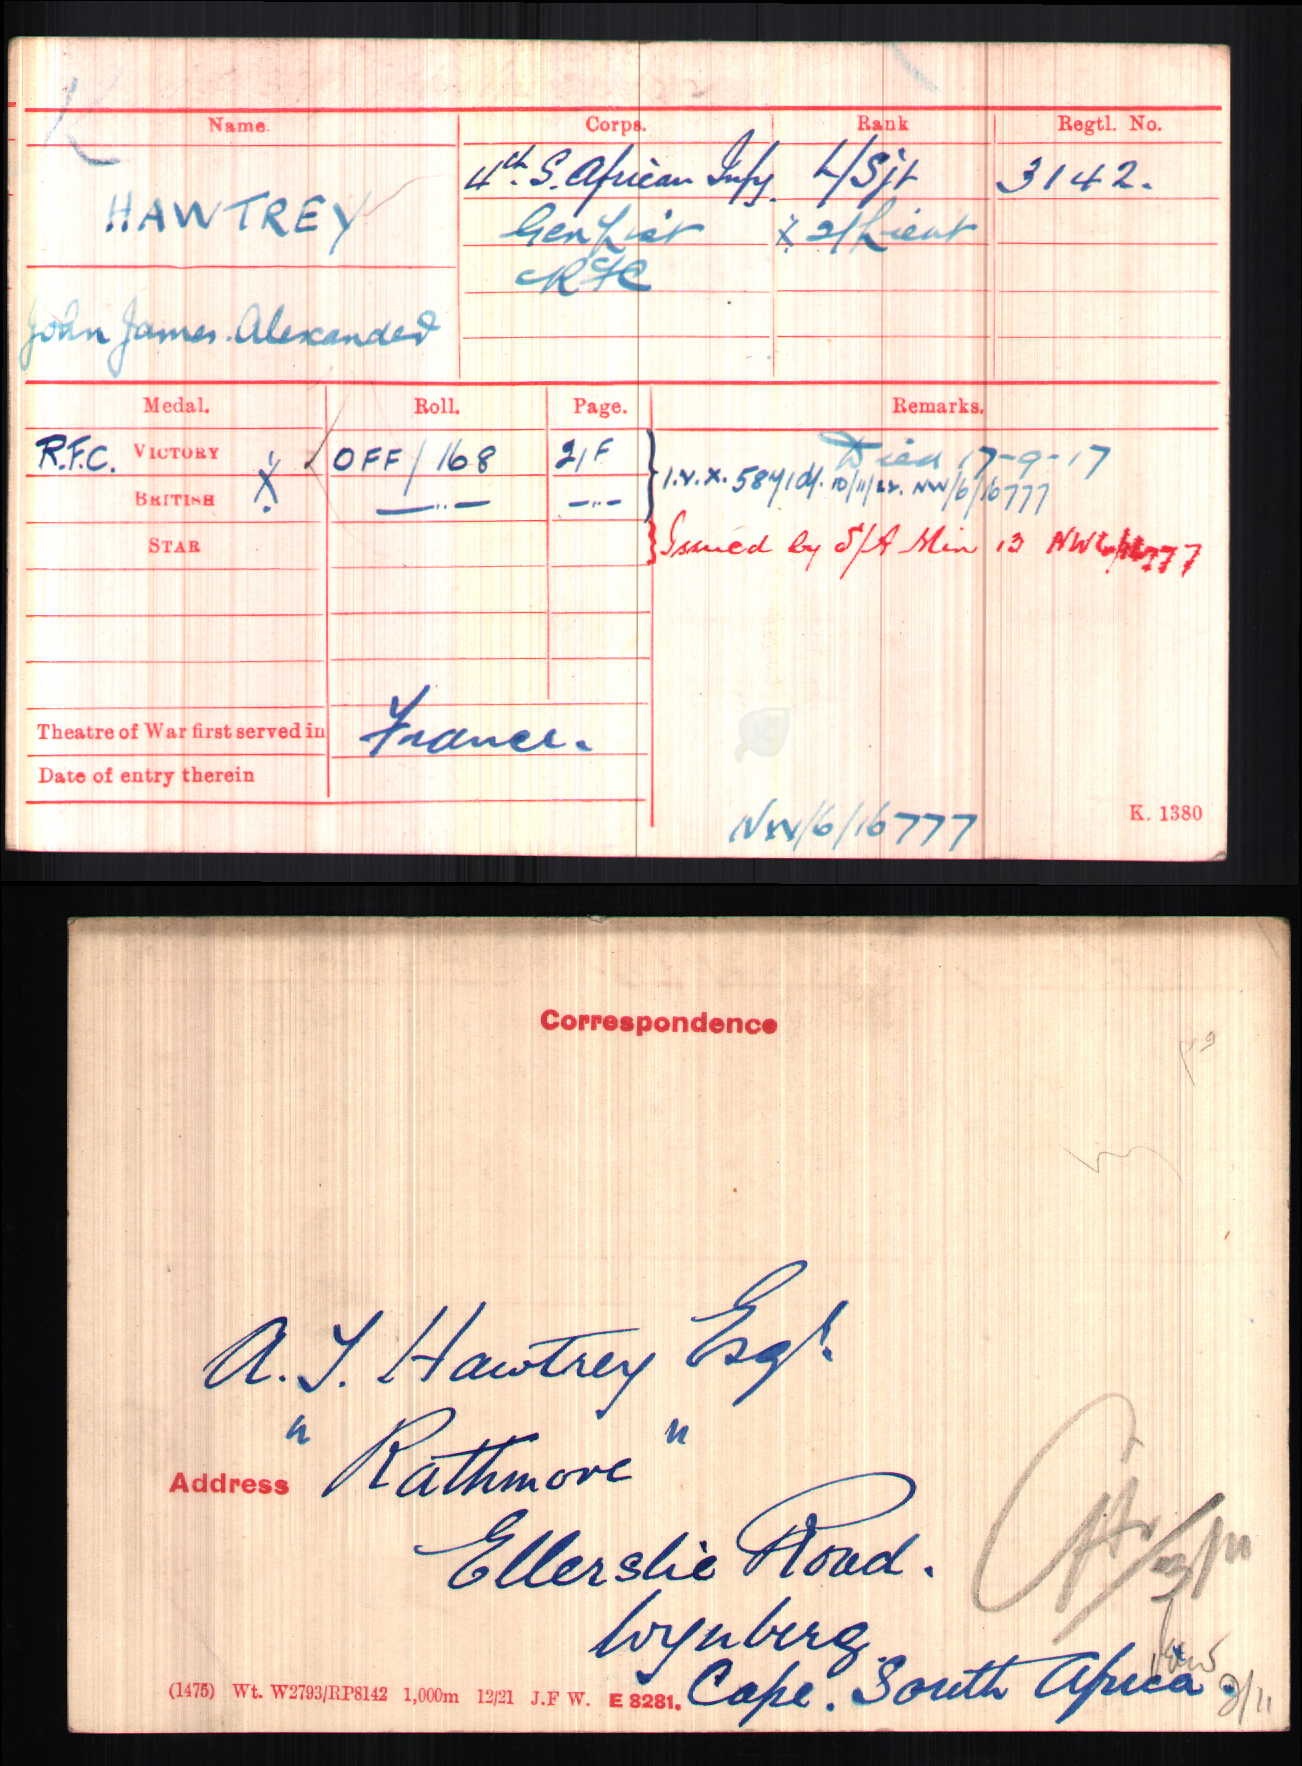 Name. Corps. Rank Regtl. No.
HAWTREY
John James Alexander
4th S. African Infy. L/Sjt 3142.
Gen List X 2/Lieut
RFC
Medal. Roll. Page. Remarks.
R.F.C. VICTORY X OFF/168 21F Died 17-9-17
BRITISH —"— —"— 1.V.X. 584/04. 10/11/22. NW/6/16777
STAR Issued by S/A Min 13 NW6/16777
Theatre of War first served in France.
Date of entry therein
NW/6/16777
K. 1380
Correspondence
A. J. Hawtrey Esqr.
" Rathmore "
Address
Ellerslie Road.
Wynberg.
Cape. South Africa.
(1475) Wt. W2793/RP8142 1,000m 12/21 J.F W. E 8281.